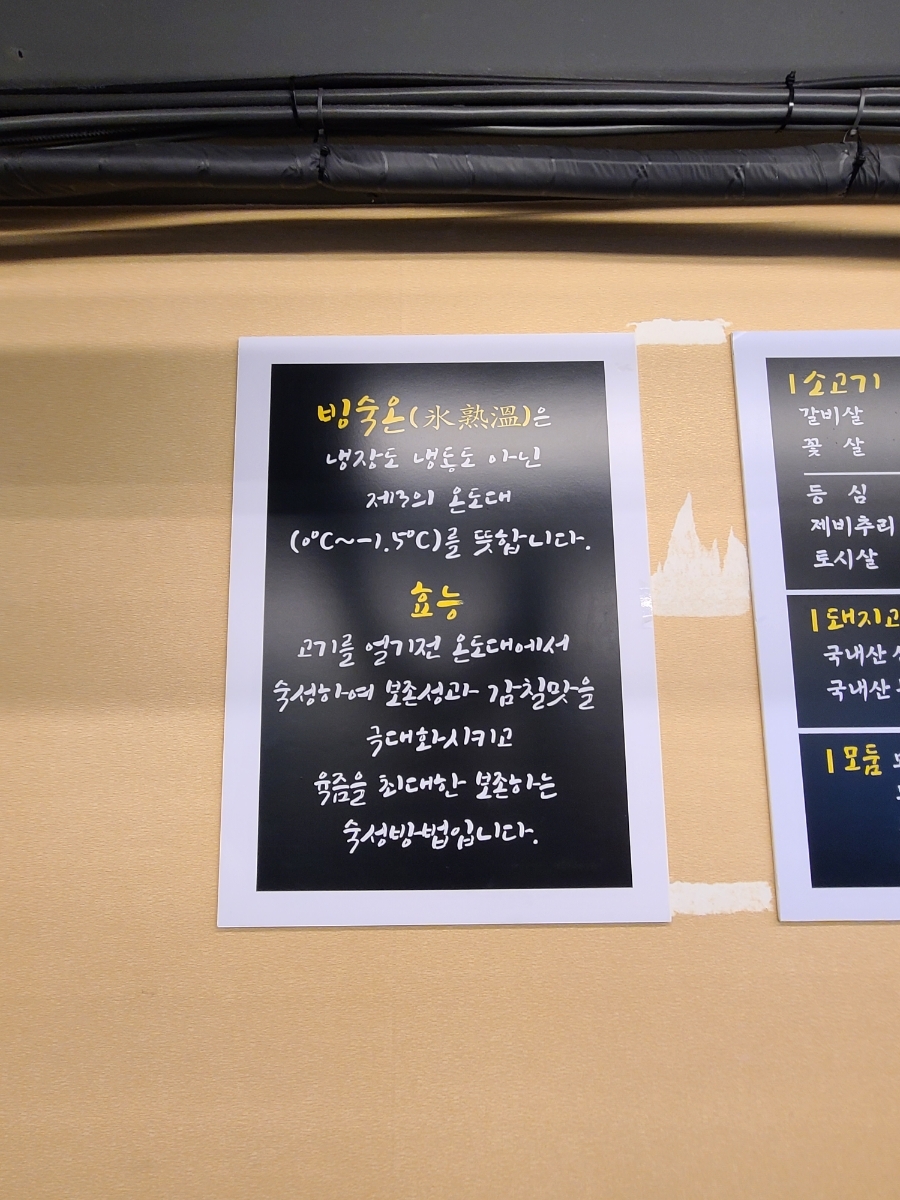 빙숙온(氷熟溫)은
냉장도 냉동도 아닌
제3의 온도대
(0℃~-1.5℃)를 뜻합니다.
효능
고기를 얼기전 온도대에서
숙성하여 보존성과 감칠맛을
극대화시키고
육즙을 최대한 보존하는
숙성방법입니다.
소고기
갈비살
꽃 살
등 심
제비추리
토시살
돼지고
국내산
국내산
모둠